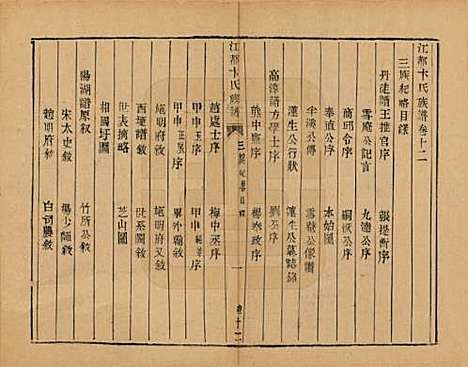 江都卞氏族譜卷十二
三族紀略目錄
丹徒譜王推官序 張提斯序
雪庵公記言 九達公序
商邱令序 嗣淑公序
奉直公序 本始圖
半溪公傳 雪庵公像讚
蓮生公行狀 蓮生公墓誌銘
高淳譜方學士序 劉公序
熊中丞序 楊參政序
三族紀略目錄 一
卷十二
趙處士序 梅中丞序
甲申玉序 甲申
甲申 序 畢外翰敘
施明府敘 施明府又敘
西埂譜敘 世系圖敘
世表摘略 芝山圖
相國圩圖
陽湖譜原敘 竹所公敘
宋太史敘 楊少師敘
趙明府敘 白司農敘